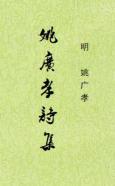 明 姚广孝
姚廣孝詩集